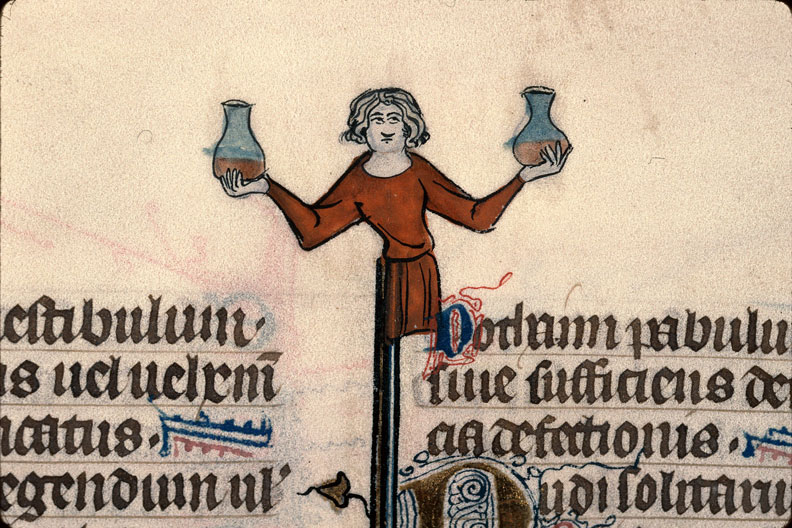 estibulum·
as uel uelxem̄
ncatus·
egendum ul'
Dotham pabulu
siue sufficiens de
cia defectionis·
udi solitaru